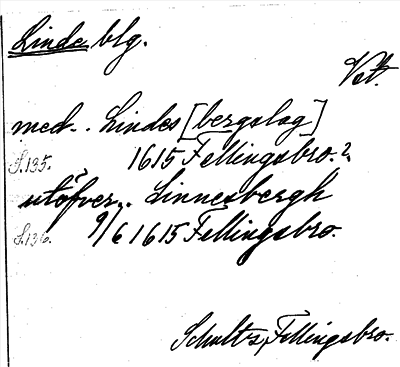 Linde blg.
Vstl.
med.. Lindes [bergslag]
S.135. 1615 Fellingsbro. 2.
utöfver.. Linnesbergh
S.136. 9/6 1615 Fellingsbro.
Schultz, Fellingsbro.